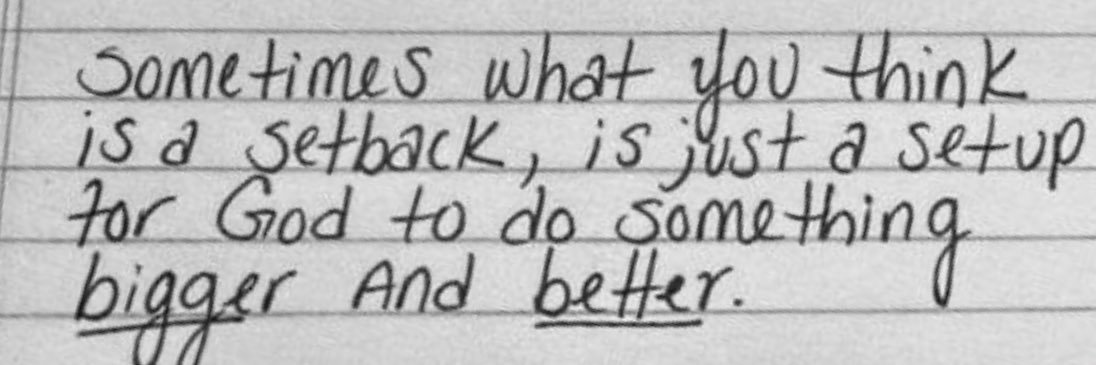 Sometimes what you think
is a setback, is just a setup
for God to do something
bigger And better.